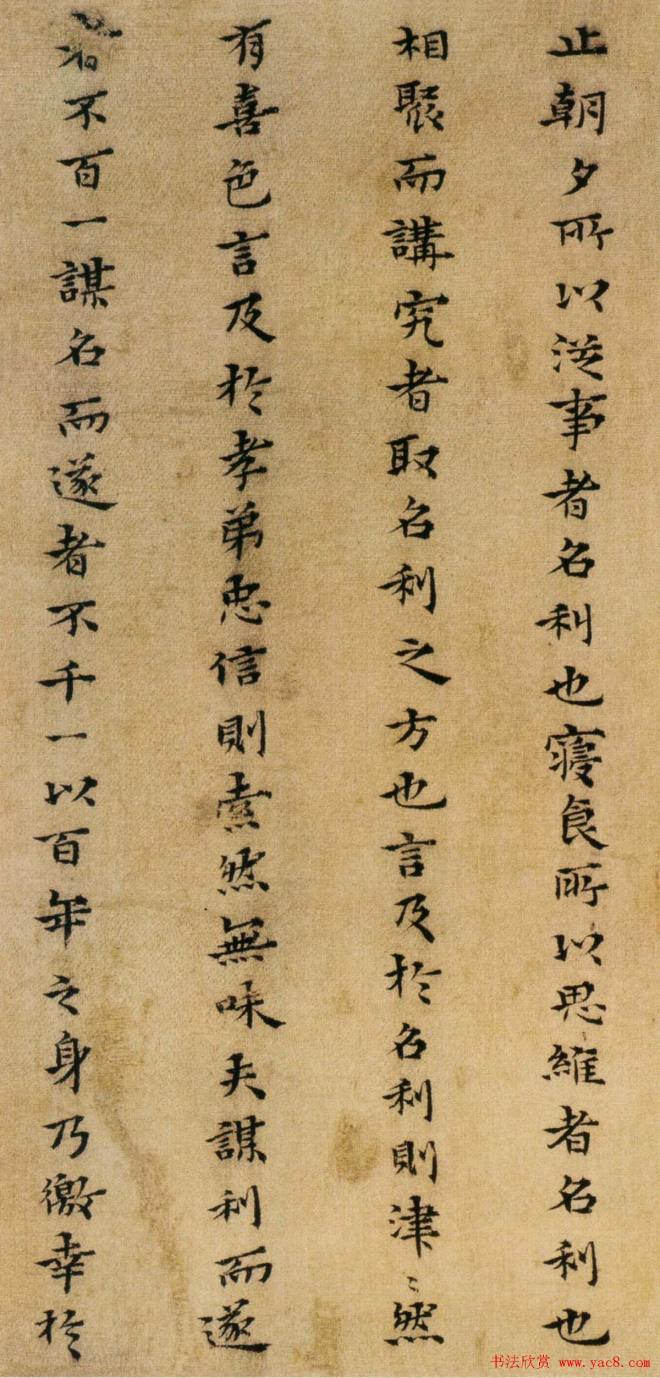 止朝夕所以從事者名利也寤食所以思維者名利也
相聚而講究者取名利之方也言及於名利則津〻然
有喜色言及於孝弟忠信則索然無味夫謀利而遂
者不百一謀名而遂者不千一以百年之身乃徼幸於
书法欣赏 www.yac8.com